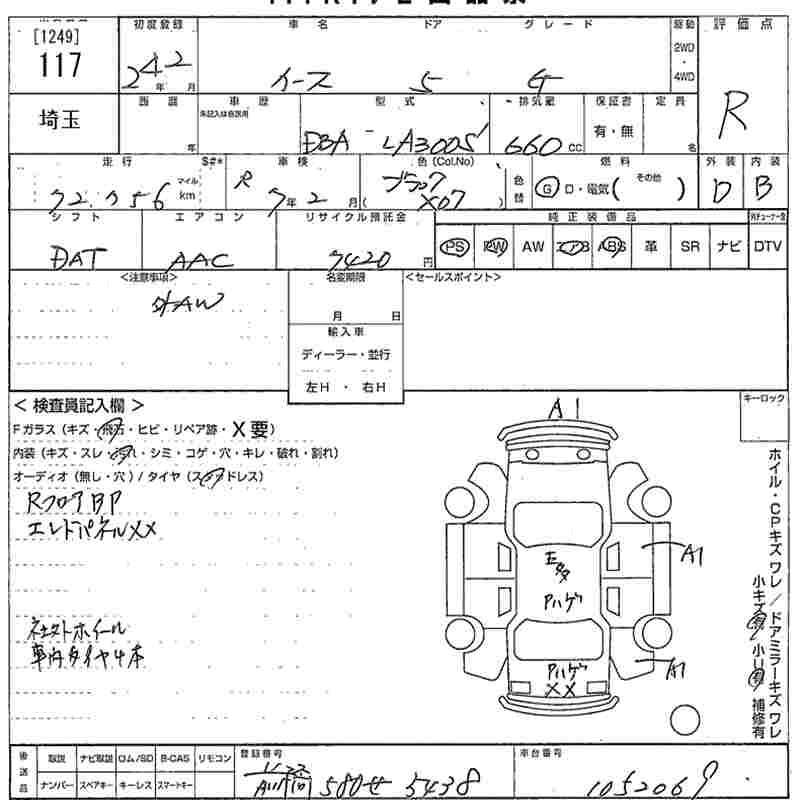 [1249]
117
初度登録
24 2
年 月
車名 ドア グレード
イース 5 G
駆動
2WD
・
4WD
評価点
R
埼玉
西暦
年
車歴
未記入は自家用
型式
DBA-LA300S
排気量
660 CC
保証書
有・無
定員
名
走行 S#*
72,756
マイル
km
車検
R 7年2月
色(Col.No)
ブラック
X07
色替
燃料
G D・電気( その他 )
外装
D
内装
B
シフト
DAT
エアコン
AAC
リサイクル預託金
7420 円
純正装備品
PS PW AW エアB ABS 革 SR ナビ DTV
<注意事項>
外AW
名変期限
月 日
輸入車
ディーラー・並行
左H・右H
<セールスポイント>
<検査員記入欄>
Fガラス(キズ・飛石・ヒビ・リペア跡・X要)
内装(キズ・スレ・汚れ・シミ・コゲ・穴・キレ・破れ・割れ)
オーディオ(無し・穴)/タイヤ(スタッドレス)
RフロアBP
エンドパネルXX
車内タイヤ4本
キーロック
A1
A1
多
アハゲ
アハゲ
XX
A1
ホイル・CPキズ ワレ/ドアミラーキズ ワレ
小キズ有 小U有 補修有
後送品
取説 ナビ取説 ロム/SD B-CAS リモコン
ナンバー スペアキー キーレス スマートキー
登録番号
580せ 5438
車台番号
1052069